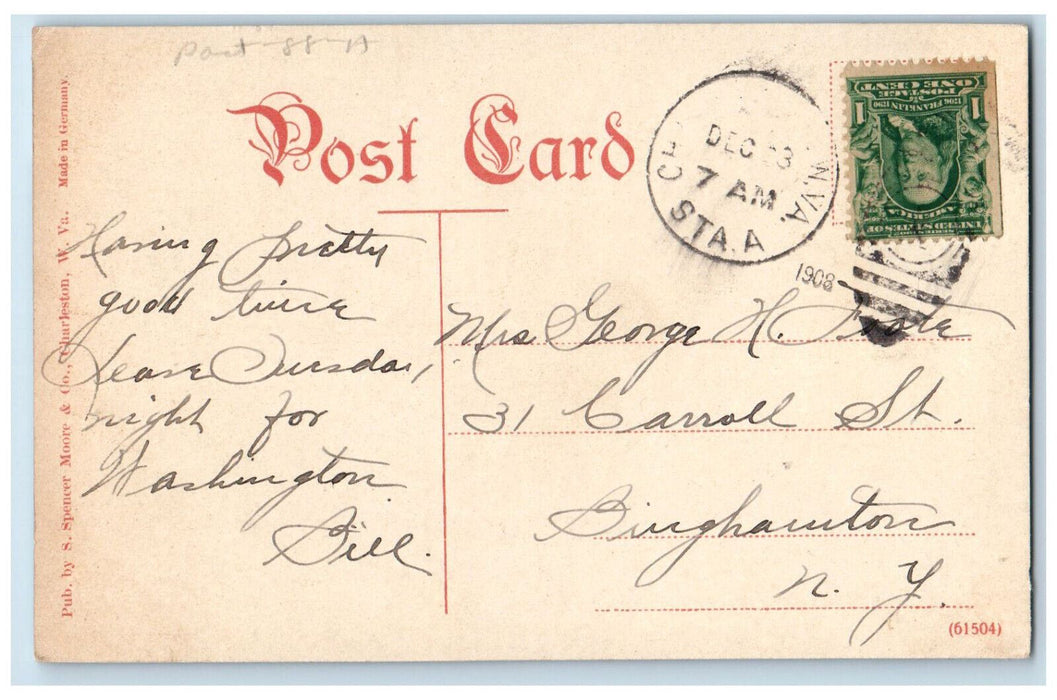 Post Card
DEC 3
7 AM
STA. A
N, VA.
1908
1 POSTAGE 1
ONE CENT
1706 FRANKLIN 1790
UNITED STATES OF
AMERICA
Having pretty
good time
Leave Tuesday
night for
Washington
Bill.
Mrs George H.
31 Carroll St.
Binghamton
N. Y.
Pub. by S. Spencer Moore & Co., Charleston, W. Va. Made in Germany.
(61504)